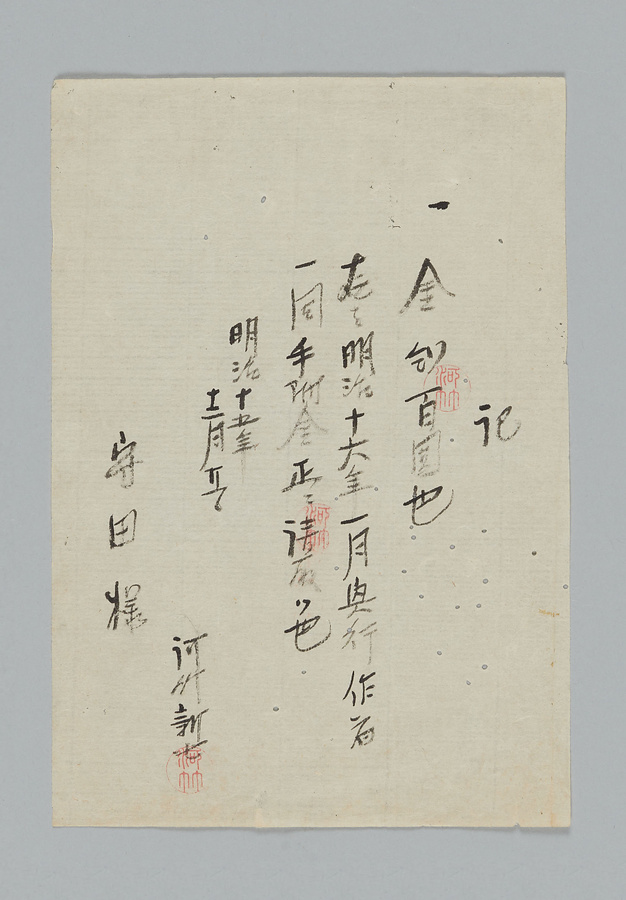 記
一 金 百圓也
右者明治十六年一月興行作者
一同手附金正ニ請取候也
明治十五年
十二月
河竹新七
守田様
河竹
河竹
河竹